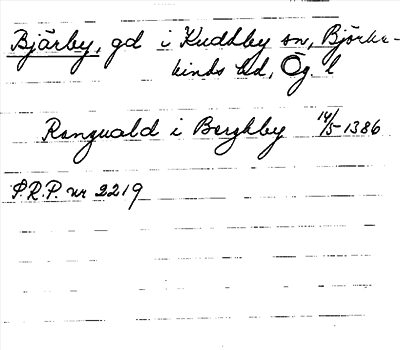 Bjärby, gd i Kudhby sn, Björke-
kinds hd, Ög. l
Ranguald i Berghby 14/5 1386
P.R.P. nr 2219